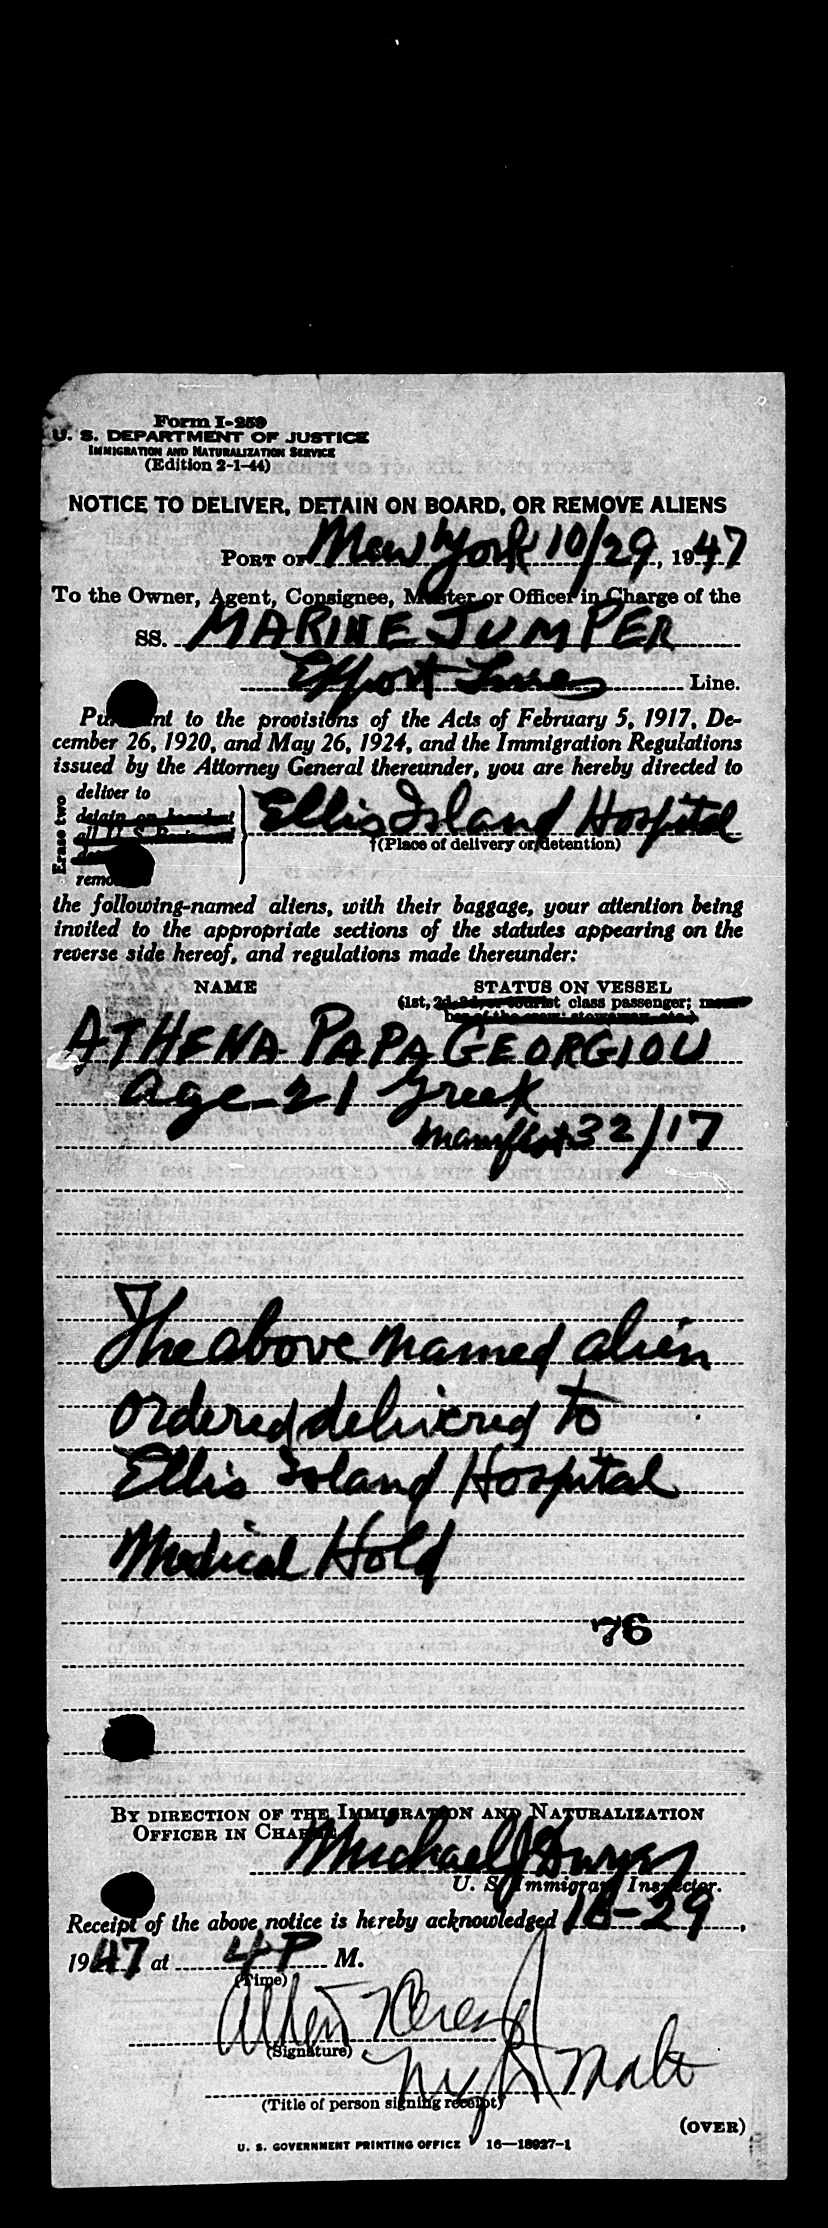 Form I-259
U. S. DEPARTMENT OF JUSTICE
IMMIGRATION AND NATURALIZATION SERVICE
(Edition 2-1-44)
NOTICE TO DELIVER, DETAIN ON BOARD, OR REMOVE ALIENS
PORT OF New York 10/29, 1947
To the Owner, Agent, Consignee, Master or Officer in Charge of the
SS. MARINE JUMPER
Export Lines Line.
Pursuant to the provisions of the Acts of February 5, 1917, De-
cember 26, 1920, and May 26, 1924, and the Immigration Regulations
issued by the Attorney General thereunder, you are hereby directed to
Erase two
deliver to
detain on board at
Ellis Island Hospital
†(Place of delivery or detention)
the following-named aliens, with their baggage, your attention being
invited to the appropriate sections of the statutes appearing on the
reverse side hereof, and regulations made thereunder:
NAME STATUS ON VESSEL
(1st, 2d, 3d, or tourist class passenger; mem-
ber of the crew; stowaway, etc.)
ATHENA PAPAGEORGIOU
age 21 Greek
manifest 32/17
The above named alien
ordered delivered to
Ellis Island Hospital
Medical Hold
76
BY DIRECTION OF THE IMMIGRATION AND NATURALIZATION
OFFICER IN CHARGE
Michael J Dwyer
U. S. Immigrant Inspector.
Receipt of the above notice is hereby acknowledged 10-29,
1947 at 4 P M.
(Time)
(Signature)
(Title of person signing receipt)
(OVER)
U. S. GOVERNMENT PRINTING OFFICE 16—18927-1